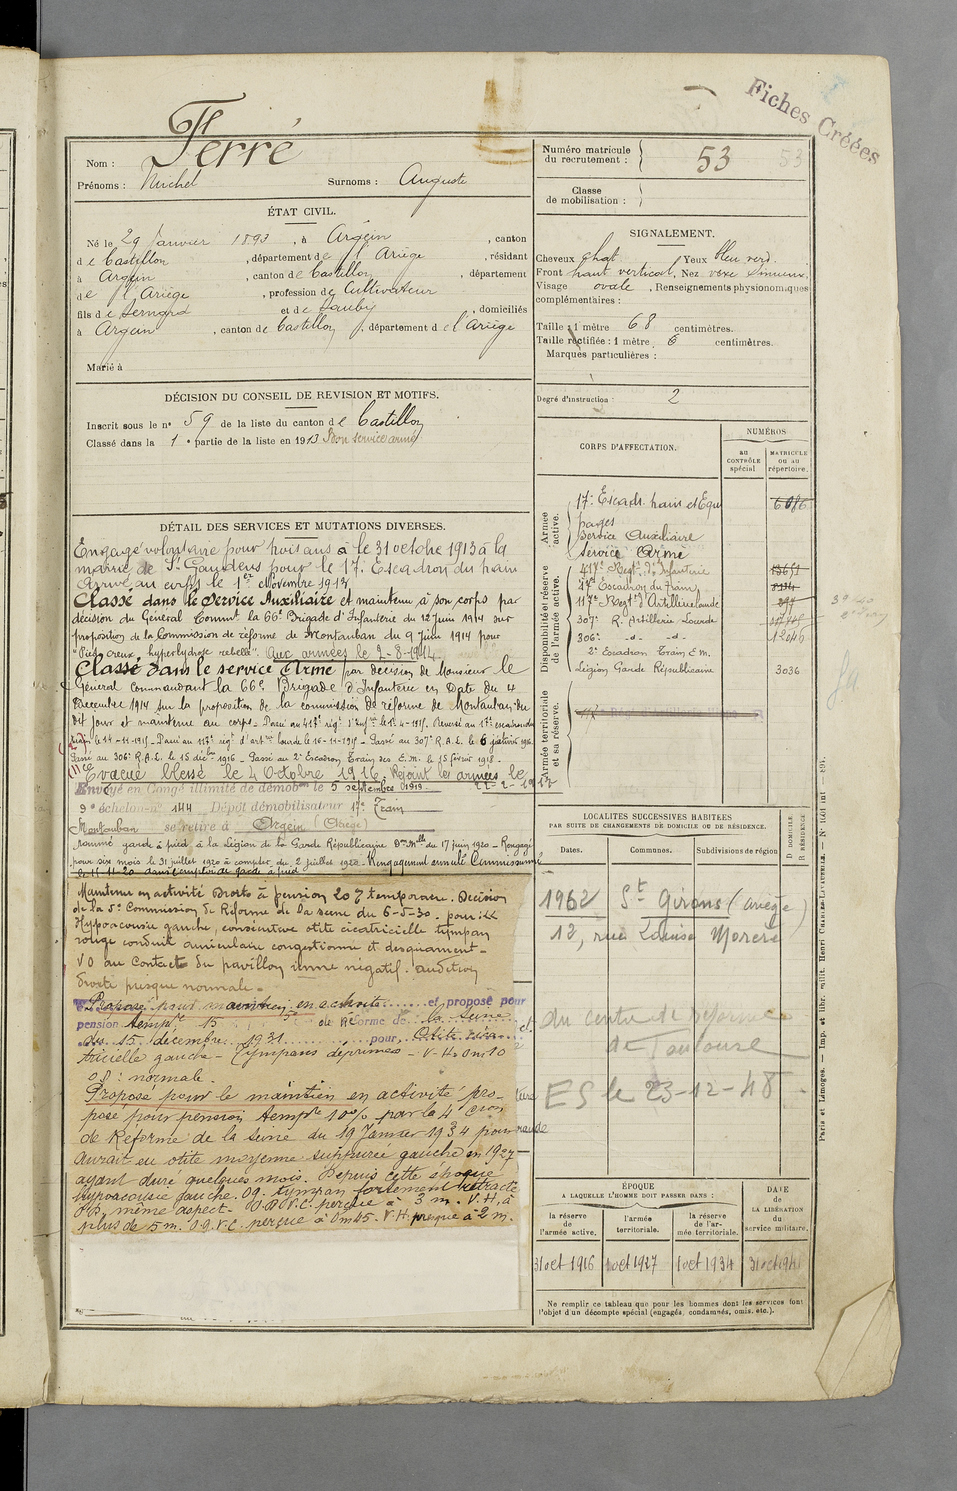 Fiches Créées
Ferré
Nom :
Prénoms : Michel Surnoms : Auguste
ÉTAT CIVIL.
Né le 29 Janvier 1893, à Argein, canton
de Castillon, département de l'Ariège, résidant
à Argein, canton de Castillon, département
de l'Ariège, profession de Cultivateur
fils de Bernard et de, domiciliés
à Argein, canton de Castillon, département de l'Ariège
Marié à
DÉCISION DU CONSEIL DE REVISION ET MOTIFS.
Inscrit sous le n° 59 de la liste du canton de Castillon
Classé dans la 1e partie de la liste en 1913 Bon service armé
DÉTAIL DES SERVICES ET MUTATIONS DIVERSES.
Engagé volontaire pour trois ans à le 31 octobre 1913 à la
mairie de St Gaudens pour le 17e Escadron du train
Arrivé au corps le 1er Novembre 1913
Classé dans le Service Auxiliaire et maintenu à son corps par
décision du Général Commt la 66e Brigade d'Infanterie du 12 juin 1914 sur
proposition de la Commission de réforme de Montauban du 9 juin 1914 pour
"Pied creux, hyperhydrose rebelle". Aux armées le 2-8-1914.
Classé dans le service Armé par décision de Monsieur le
Général commandant la 66e Brigade d'Infanterie en Date du 4
Décembre 1914 sur la proposition de la commission de réforme de Montauban du
dit jour et maintenu au corps - Passé au 417e régt d'Infrie le 1-4-1915. Reversé au 17e escadron du
train le 14-11-1915 - Passé au 117e régt d'artrie lourde le 16-11-1915 - Passé au 307e R.A.L. le 6 janvier 1916
Passé au 306e R.A.L. le 15 décbre 1916 - Passé au 2e Escadron Train des E.M. le 15 février 1918 -
Evacué blessé le 4 Octobre 1916. Rejoint les armées le
22-2-1917
Envoyé en Congé illimité de démobon le 5 septembre 1919
9e échelon n° 144 Dépôt démobilisateur 17e Train
Montauban se retire à Argein (Ariège)
nommé garde à pied à la Légion de la Garde Républicaine Don Mlle du 17 juin 1920 - Rengagé
pour six mois le 31 juillet 1920 à compter du 2 juillet 1920 - Rengagement annulé Commissionné
le 11-11-20 dans l'emploi de garde à pied
Maintenu en activité Droits à pension 20 % temporaire. Décision
de la 5e Commission de Réforme de la Seine du 6-5-30. pour :
Hypoacousie gauche, consécutive otite cicatricielle tympan
rouge conduit auriculaire congestionné et desquament -
V O au Contact du pavillon gauche négatif. audition
droite presque normale -
Proposé pour maintien en activité et proposé pour
pension tempre 15 de Réforme de la Seine
du 15 décembre 1931 pour Otite cica-
tricielle gauche - Tympans déprimés - V-H: 0m10
O D : normale.
Proposé pour le maintien en activité pro-
posé pour pension tempre 10% par la 4e Cion
de Réforme de la Seine du 19 Janvier 1934 pour
Aurait eu otite moyenne suppurée gauche en 1927
ayant duré quelques mois. Depuis cette époque
hypoacousie gauche. OG. tympan fortement rétracté
OD. même aspect. O.G V.C. perçue à 3 m. V.H. à
plus de 5 m. O.D. V.C. perçue à 0m45. V.H. presque à 2 m.
Numéro matricule
du recrutement : 53 53
Classe
de mobilisation :
SIGNALEMENT.
Cheveux chat Yeux bleu verd.
Front haut vertical, Nez vexe sinueux
Visage ovale, Renseignements physionomiques
complémentaires :
Taille : 1 mètre 68 centimètres.
Taille rectifiée : 1 mètre 6 centimètres.
Marques particulières :
Degré d'instruction : 2
CORPS D'AFFECTATION.
NUMÉROS
au CONTRÔLE spécial
MATRICULE OU AU répertoire.
Armée active.
17e Escadr. train et Equi 6086
pages
Service Auxiliaire
Service Armé
Disponibilité et réserve de l'armée active.
417e Regt d'Infanterie
17e Escadron du Train
117e Regt d'Artillerie lourde
307e R. Artillerie Lourde
306e -d- -d- 12046
2e Escadron Train E.M.
Légion Garde Républicaine 3036
Armée territoriale et sa réserve.
LOCALITÉS SUCCESSIVES HABITÉES
PAR SUITE DE CHANGEMENTS DE DOMICILE OU DE RÉSIDENCE.
Dates. Communes. Subdivisions de région
D DOMICILE R RÉSIDENCE
1962 St Girons (Ariège)
12, rue Louise
du centre de réforme
de Toulouse
ES le 23-12-48
ÉPOQUE
A LAQUELLE L'HOMME DOIT PASSER DANS :
DATE
DE
LA LIBÉRATION
du
service militaire.
la réserve de l'armée active.
l'armée territoriale.
la réserve de l'armée territoriale.
31 oct 1916 1 oct 1927 1 oct 1934 31 oct 1941
Ne remplir ce tableau que pour les hommes dont les services font
l'objet d'un décompte spécial (engagés, condamnés, omis, etc.).
Paris et Limoges. — Imp. et libr. milit. Henri Charles-Lavauzelle.